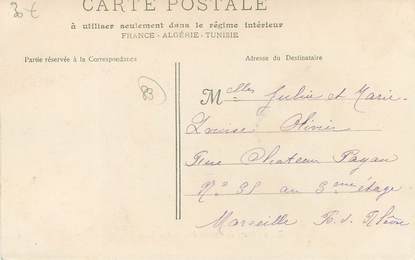 30€
CARTE POSTALE
à utiliser seulement dans le régime intérieur
FRANCE - ALGÉRIE - TUNISIE
Partie réservée à la Correspondance
Adresse du Destinataire
83
Melles Julie et Marie
Louise Olivier
Rue Chateau Payan
N° 35 au 3ème étage
Marseille B. d. Rhône